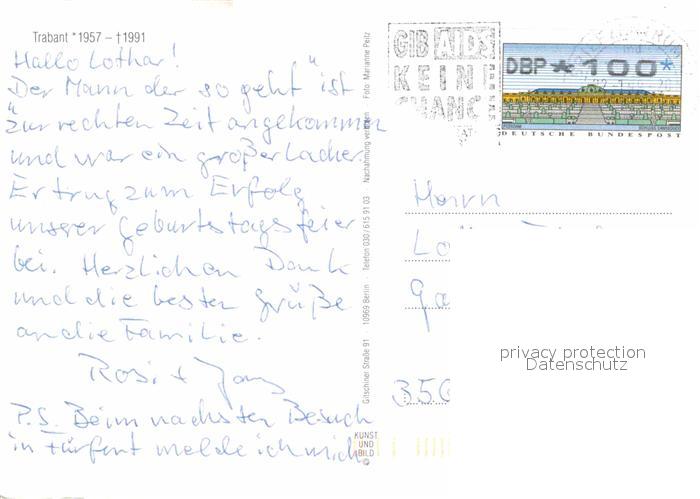 Trabant *1957 – †1991
Hallo Lothar!
"Der Mann der so geht" ist
zur rechten Zeit angekommen
und war ein großer Lacher.
Er trug zum Erfolg
unserer Geburtstagsfeier
bei. Herzlichen Dank
und die besten Grüße
an die Familie.
Rosi +
P.S. Beim nächsten Besuch
in melde ich mich
Gitschiner Straße 91 10969 Berlin Telefon 030 / 615 91 03 Nachahmung verboten Foto Marianne Peitz
KUNST
UND
BILD
©
GIB AIDS
KEINE
CHANC
DBP * 100 *
DEUTSCHE BUNDESPOST
Herrn
Lo
Ga
350
privacy protection
Datenschutz